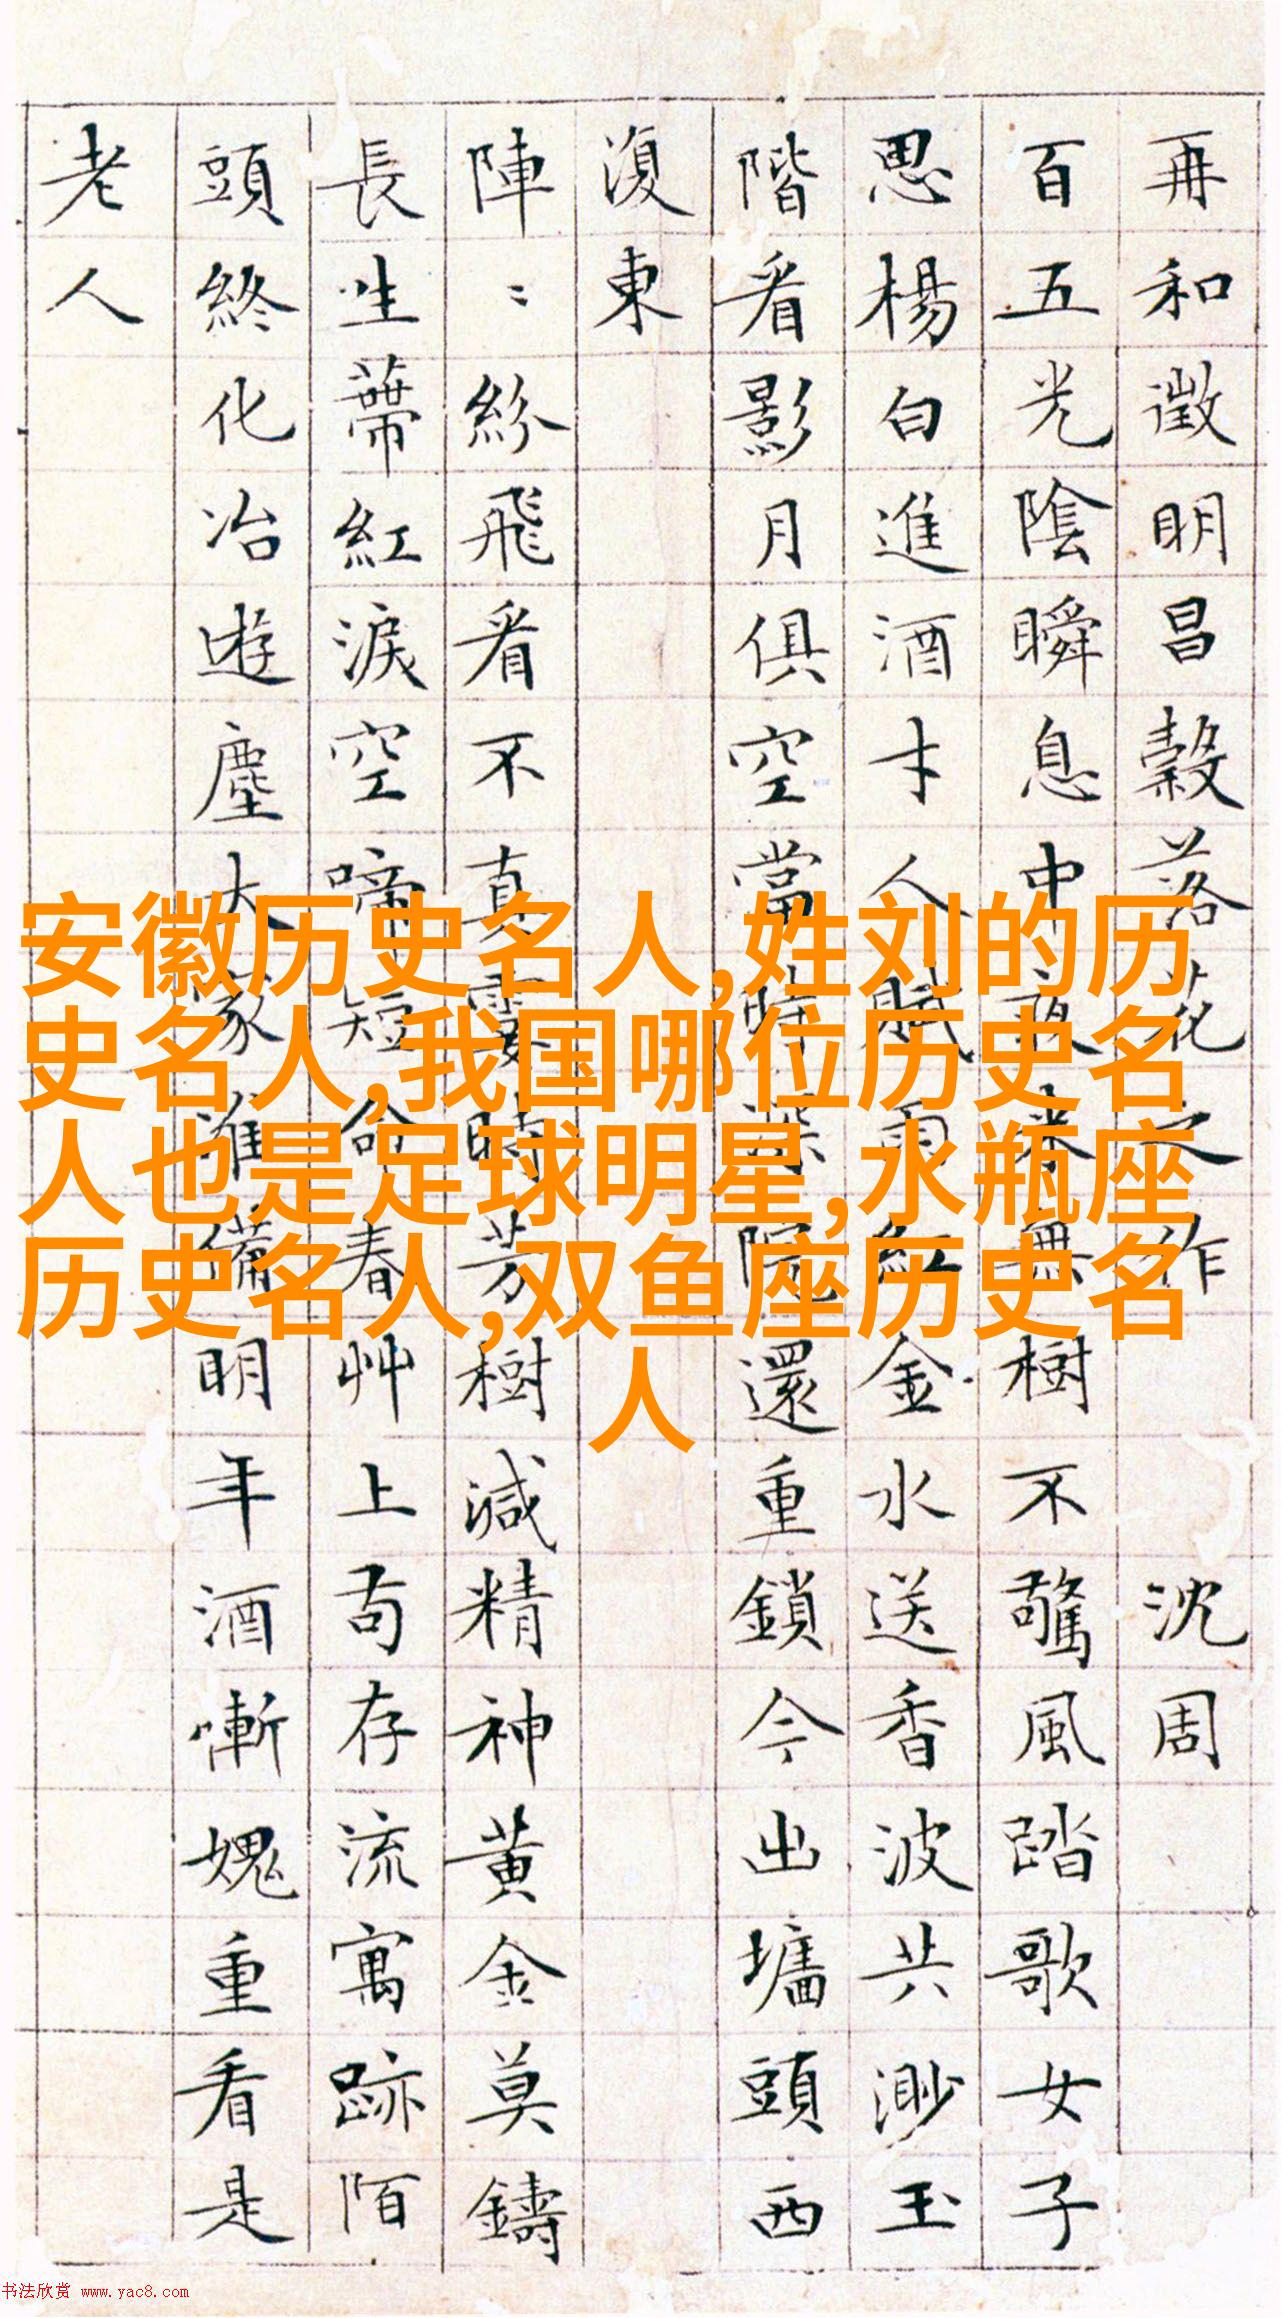 再和徵明昌穀落花之作 沈周
百五光陰瞬息中夜來無樹不驚風踏歌女子
思楊白進酒才人賦雨紅金水送香波共渺玉
階看影月俱空當時深院還重鎖今出墻頭西
復東
陣〻紛飛看不真霎時芳樹減精神黃金莫鑄
長生蔕紅淚空啼短命春艸上苟存流寓跡陌
頭終化冶遊塵大家準備明年酒慚媿重看是
老人
安徽历史名人,姓刘的历
史名人,我国哪位历史名
人也是足球明星,水瓶座
历史名人,双鱼座历史名
人
书法欣赏 www.yac8.com